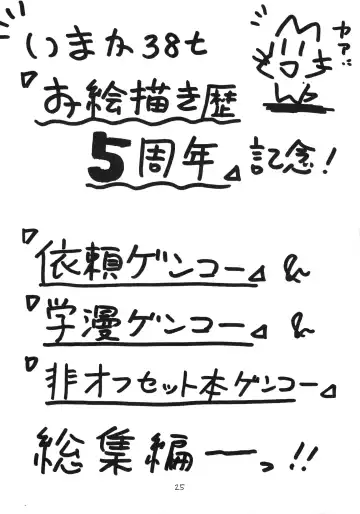 いまか38t
カアーッ
『お絵描き歴
5周年』記念!
『依頼ゲンコー』&
『学漫ゲンコー』&
『非オフセット本ゲンコー』
総集編ーっ!!
25